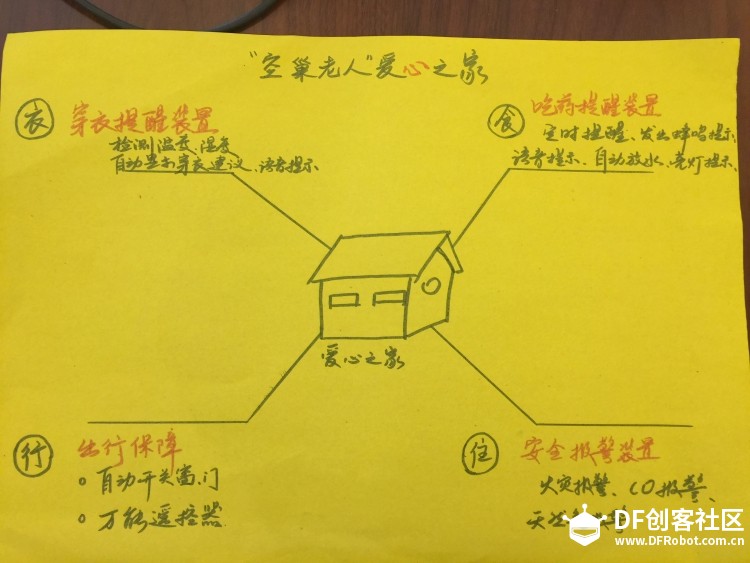 "空巢老人"爱心之家
衣 穿衣提醒装置
检测温度、湿度
自动显示穿衣建议、语音提示
食 吃药提醒装置
定时提醒、发出蜂鸣提示
语音提示、自动放水、亮灯提示、
爱心之家
行 出行保障
自动开关窗、门
万能遥控器
住 安全报警装置
火灾报警、CO报警、
DF创客社区
www.DFRobot.com.cn